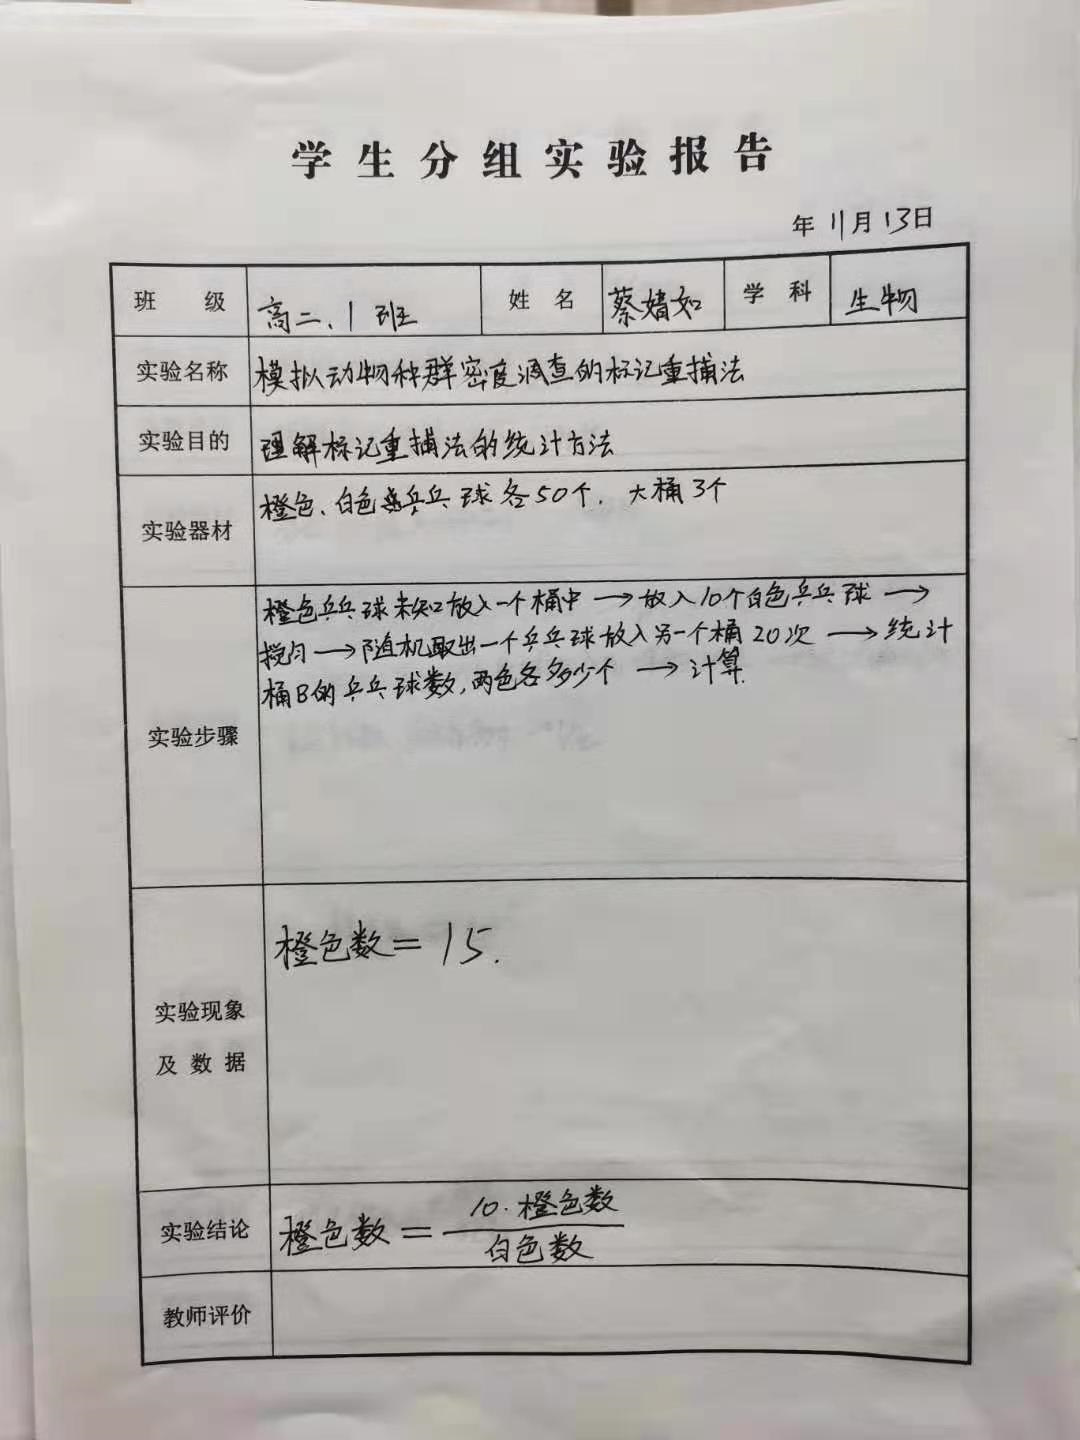 学生分组实验报告
年 11月13日
班 级 高二、1班 姓 名 蔡婧如 学 科 生物
实验名称 模拟动物种群密度调查的标记重捕法
实验目的 理解标记重捕法的统计方法
实验器材 橙色、白色乒乓球各50个. 大桶3个
橙色乒乓球未知放入一个桶中→放入10个白色乒乓球→
搅匀→随机取出一个乒乓球放入另一个桶20次→统计
桶B的乒乓球数,两色各多少个→计算.
实验步骤
橙色数=15.
实验现象
及数据
实验结论 橙色数=10·橙色数/白色数
教师评价